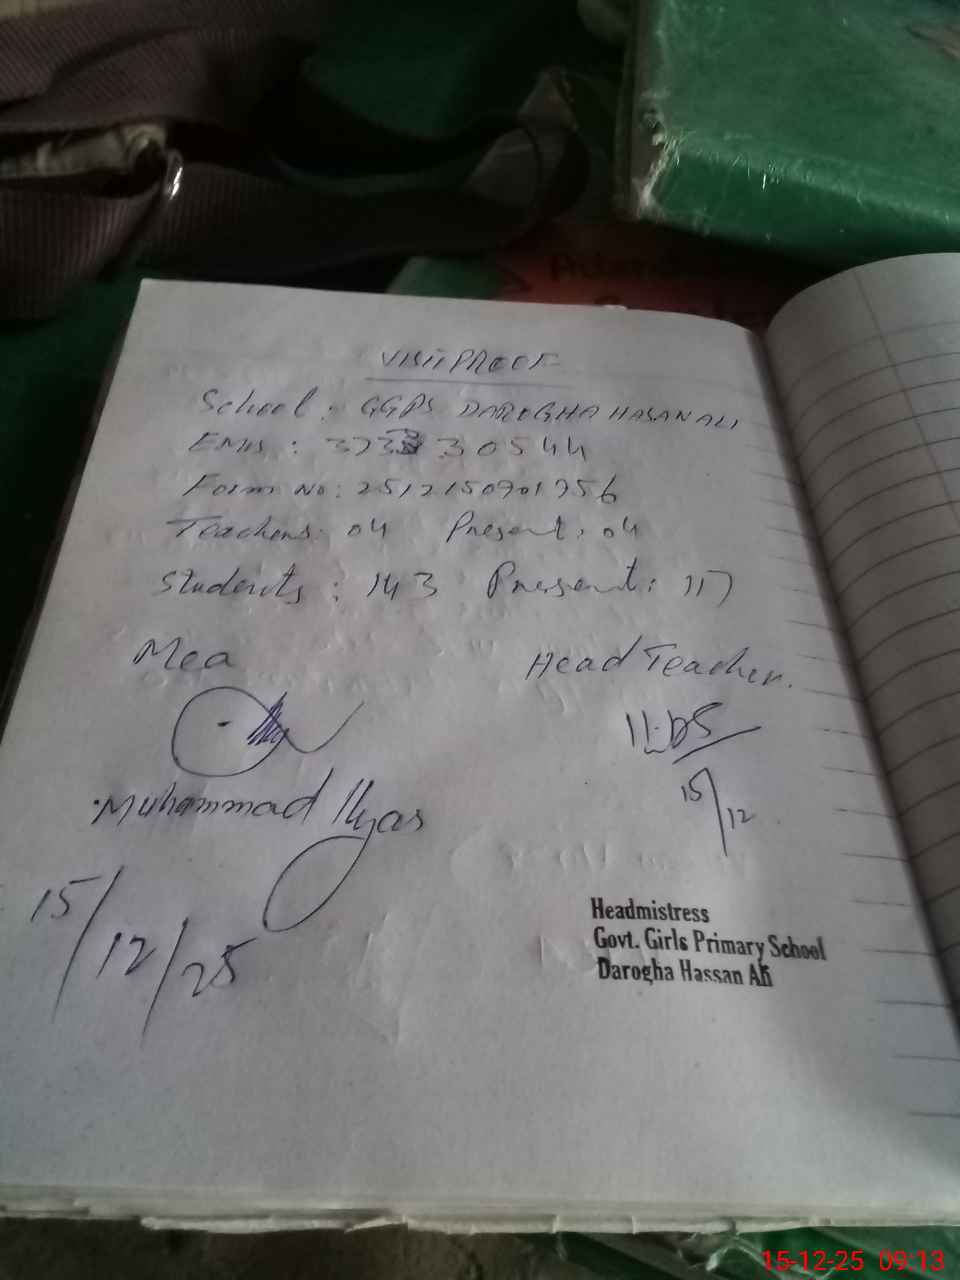 VISIT PROOF
School: GGPS DAROGHA HASAN ALI
EMIS: 37330544
Form No: 2512150901956
Teachers: 04 Present: 04
Students: 143 Present: 117
Mea
Head Teacher.
15/12
Muhammad Ilyas
15/12/25
Headmistress
Govt. Girls Primary School
Darogha Hassan Ali
15-12-25 09:13